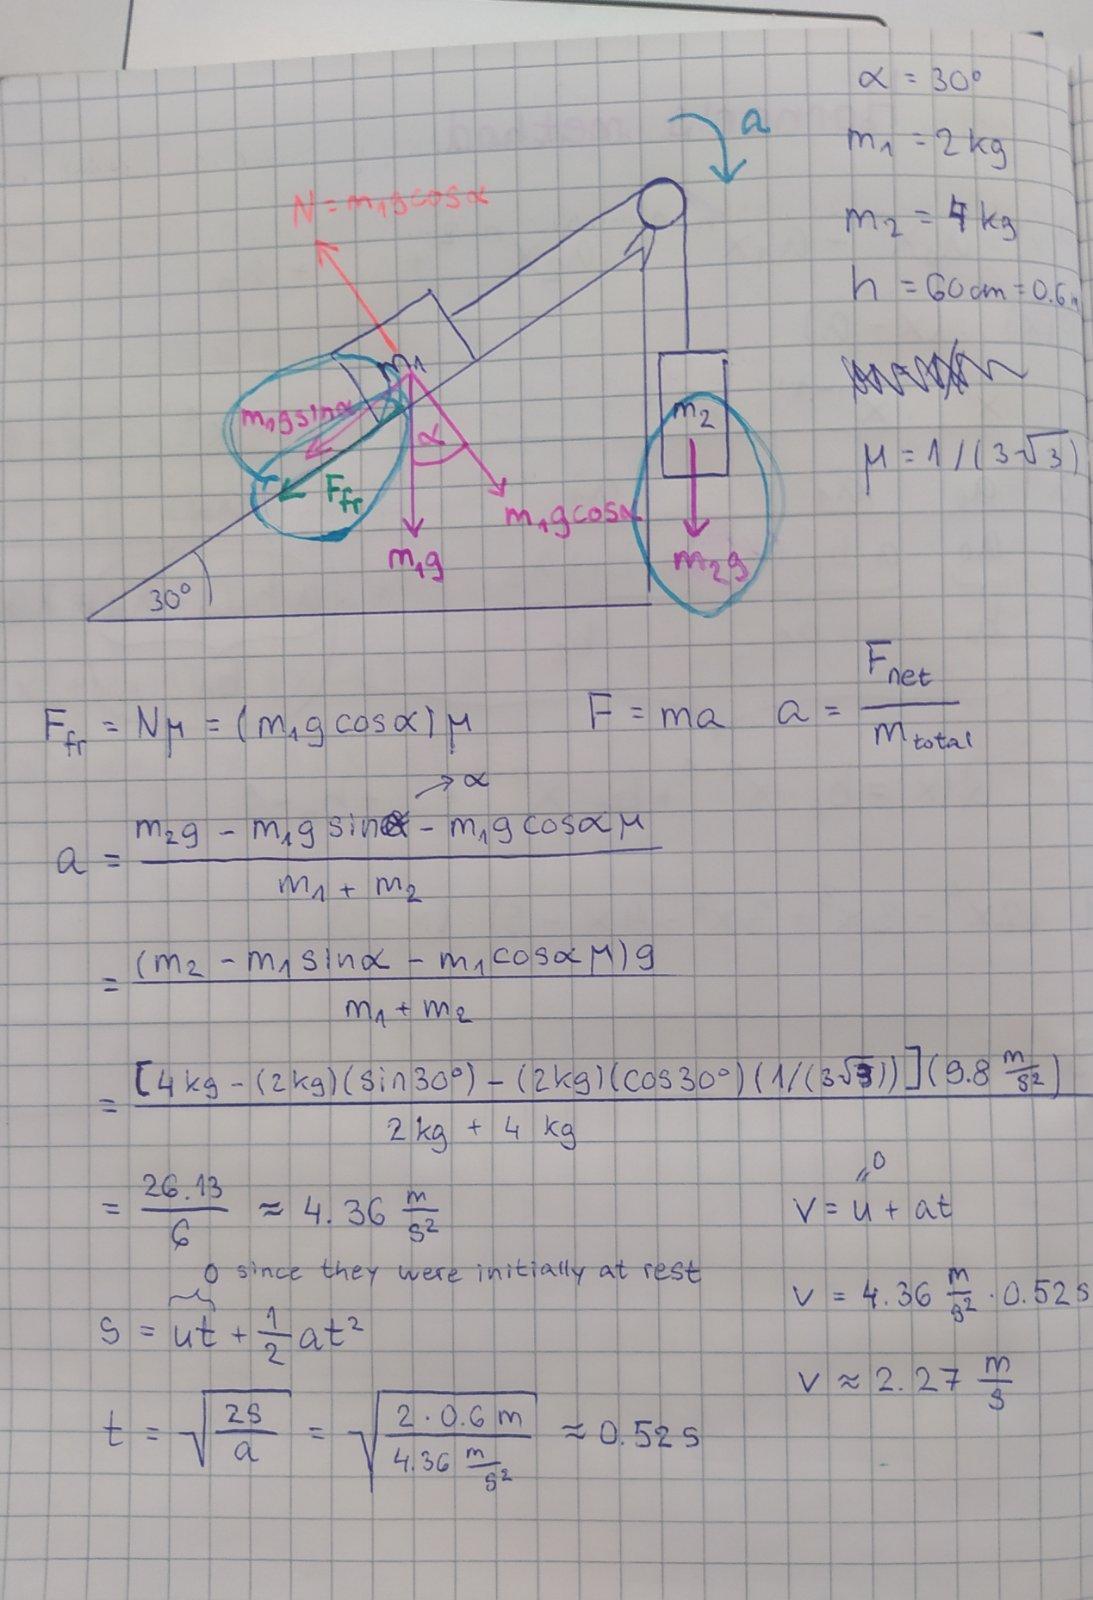 α = 30°
a
m₁ = 2 kg
N = m₁gcosα
m₂ = 4 kg
h = 60 cm = 0.6
m₁
m₁gsinα
m₂
α
μ = 1/(3√3)
Ffr
m₁gcosα
m₁g
m₂g
30°
Ffr = Nμ = (m₁g cosα)μ
F = ma
a = Fnet / mtotal
→ α
a = (m₂g - m₁g sin - m₁g cosα μ) / (m₁ + m₂)
= (m₂ - m₁ sinα - m₁cosα μ)g / (m₁ + m₂)
= [4 kg - (2 kg)(sin30°) - (2 kg)(cos30°)(1/(3√3))](9.8 m/s²) / (2 kg + 4 kg)
= 26.13 / 6 ≈ 4.36 m/s²
0 since they were initially at rest
s = ut + 1/2 at²
t = √(2s / a) = √(2 · 0.6 m / 4.36 m/s²) ≈ 0.52 s
= 0
v = u + at
v = 4.36 m/s² · 0.52 s
v ≈ 2.27 m/s